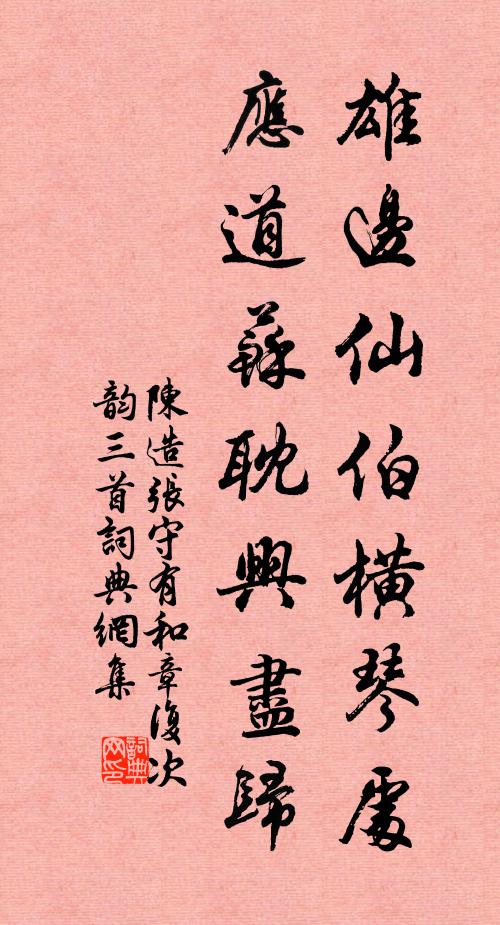 雄邊仙伯橫琴處
應道蘇耽興盡歸
陳造張守有和章復次
韵三首詞典網集
詞典網印